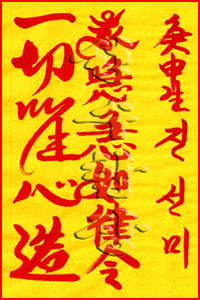 庚申生 진선미
急急如律令
一切唯心造